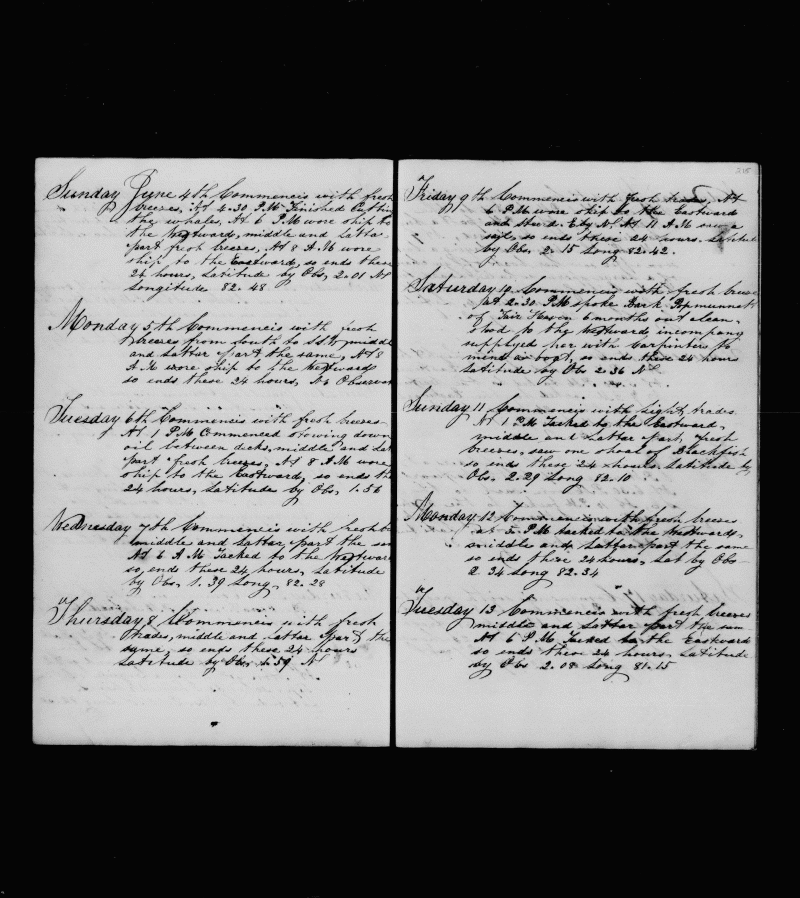 Sunday June 4th Commencis with fresh
breezes, At 4.30 P.M. Finished Cuttin
the whale, At 6 P.M wore ship to
the Westward, middle and Lattar
part fresh breezes, At 8 A.M wore
ship to the Eastward, so ends these
24 hours, Latitude by Obs, 2.01 N
Longitude 82.48
Monday 5th Commencis with fresh
breezes from South to S.S.W, middle
and Lattar part the same, At 8
A.M wore ship to the Westward
so ends these 24 hours, No Observat
Tuesday 6th Commencis with fresh breezes
At 1 P.M Commenced stowing down
oil between decks, middle and Lat
part fresh breezes, At 8 A.M wore
ship to the Eastward, so ends the
24 hours, Latitude by Obs, 1.56
Wednesday 7th Commencis with fresh b
middle and Lattar, part the sa
At 6 A.M Tacked to the Westward
so, ends these 24 hours, Latitude
by Obs, 1.39 Long, 82.28
Thursday 8 Commencis with fresh
trades, middle and Lattar part the
same, so ends these 24 hours
Latitude by Obs, 1.59 N
215
Friday 9th Commencis with fresh trades, At
6 P.M wore ship to the Eastward
and Steerd. E by N. At 11 A.M saw a
sail, so ends these 24 hours. Latitude
by Obs, 2.15 Long 82.42.
Saturday 10 Commencis with fresh breeze
at 2.30 P.M spoke Bark
of Fair Haven 6 months out clean
to the Westward, in company
supplyed her with Carpinter to
mind a boat, so ends these 24 hours
Latitude by Obs 2.36 N
Sunday 11 Commencis with Light trades
At 1 P.M Tacked to the Eastward,
middle and Lattar part, fresh
breezes, saw one shoal of Blackfish
so ends these 24 hours, Latitude by
Obs, 2.29 Long 82.10
Monday 12 Commencis with fresh breezes
at 5 P.M tacked to the Westward,
middle and Lattar part the same
so ends these 24 hours, Lat by Obs
2.34 Long 82.34
Tuesday 13 Commencis with fresh breezes
middle and Lattar part the sam
At 6 P.M Tacked to the Eastward
so ends these 24 hours, Latitude
by Obs 2.08 Long 81.15